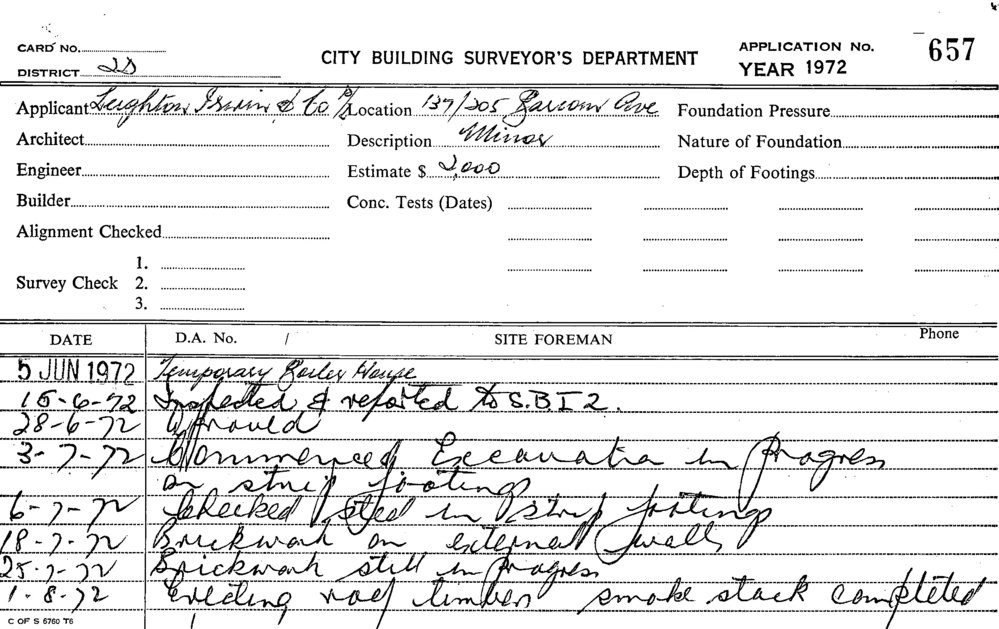 CARD No.
DISTRICT 2D
CITY BUILDING SURVEYOR'S DEPARTMENT
APPLICATION No. 657
YEAR 1972
Applicant Leighton Irwin & Co P/L Location 137/205 Barcom Ave Foundation Pressure
Architect Description Minor Nature of Foundation
Engineer Estimate $ 2,000 Depth of Footings
Builder Conc. Tests (Dates)
Alignment Checked
1.
Survey Check 2.
3.
DATE D.A. No. / SITE FOREMAN Phone
5 JUN 1972 Temporary Boiler House
15-6-72 Inspected & reported to S.B.I 2.
28-6-72 Approved
3-7-72 Commenced Excavation in Progress
on strip footings
6-7-72 Checked steel in strip footings
18-7-72 Brickwork on external walls
25-7-72 Brickwork still in progress
1-8-72 Erecting roof timbers smoke stack completed
C OF S 6760 T6